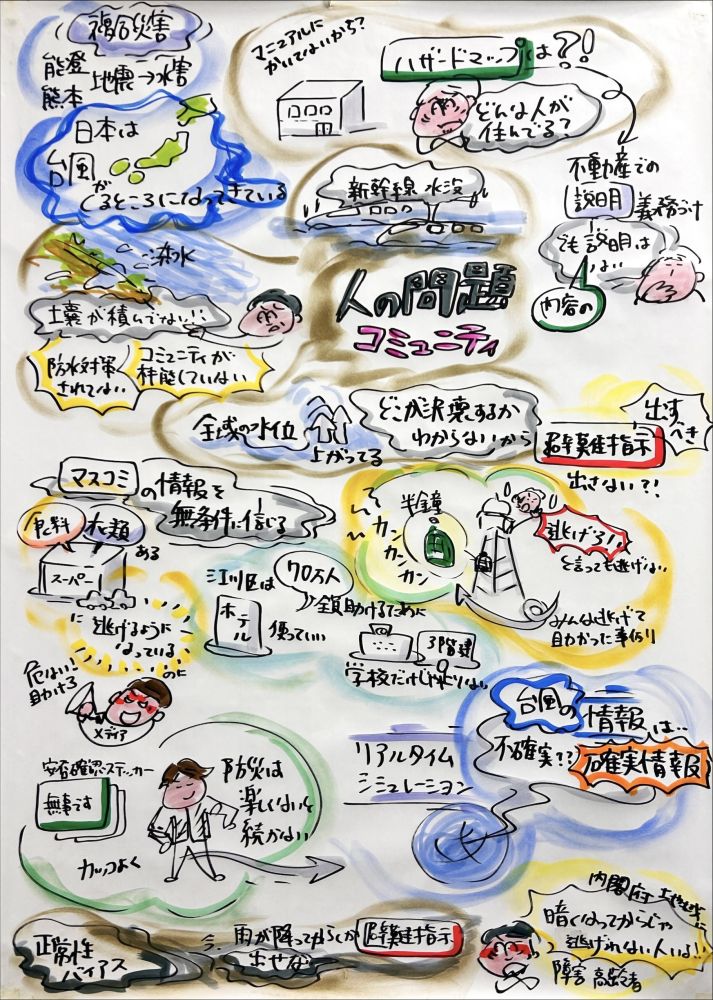 複合災害
能登
熊本
地震→水害
日本は
台風
が
くるところになってきている
マニュアルに
かいてないかち?
ハザードマップは?!
どんな人が
住んでる?
不動産での
説明義務づけ
でも説明は
しない
内容の
新幹線 水没
浸水
土嚢が積んでない!!
防水対策
されてない
コミュニティが
秤能していない
人の問題
コミュニティ
全域の水位
上がってる
どこが決壊するか
わからないから
避難指示
出すべき
出さない?!
マスコミの情報を
無条件に信じる
食料
衣類
ある
スーパー
逃げるように
なっている
のに
危ない!
助けろ
メディア
江川区は
70万人
全員助けるために
ホテル
使っていい
3階建
学校だけじゃ足りない
半鐘
カン
カン
カン
逃げろ!!
と言っても逃げない
みんな逃げて
助かった事例り
台風の情報は…
不確実??
確実情報
リアルタイム
シミュレーション
安否確認ステッカー
無事です
カッコよく
防災は
楽しくないと
続かない
正常性
バイアス
雨が降ってからしか避難指示
出せない
内閣府
暗くなってからじゃ
逃げれない人は!!
障害 高齢者